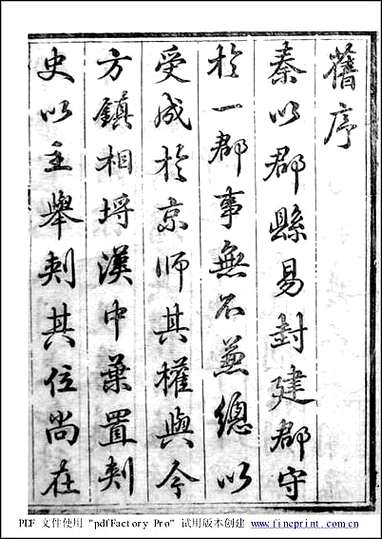 舊序
秦以郡縣易封建郡守
於一郡事無不兼總以
受成於京師其權與今
方鎮相埒漢中葉置刺
史以主舉刺其位尚在
PDF 文件使用 "pdfFactory Pro" 试用版本创建 www.fineprint.com.cn